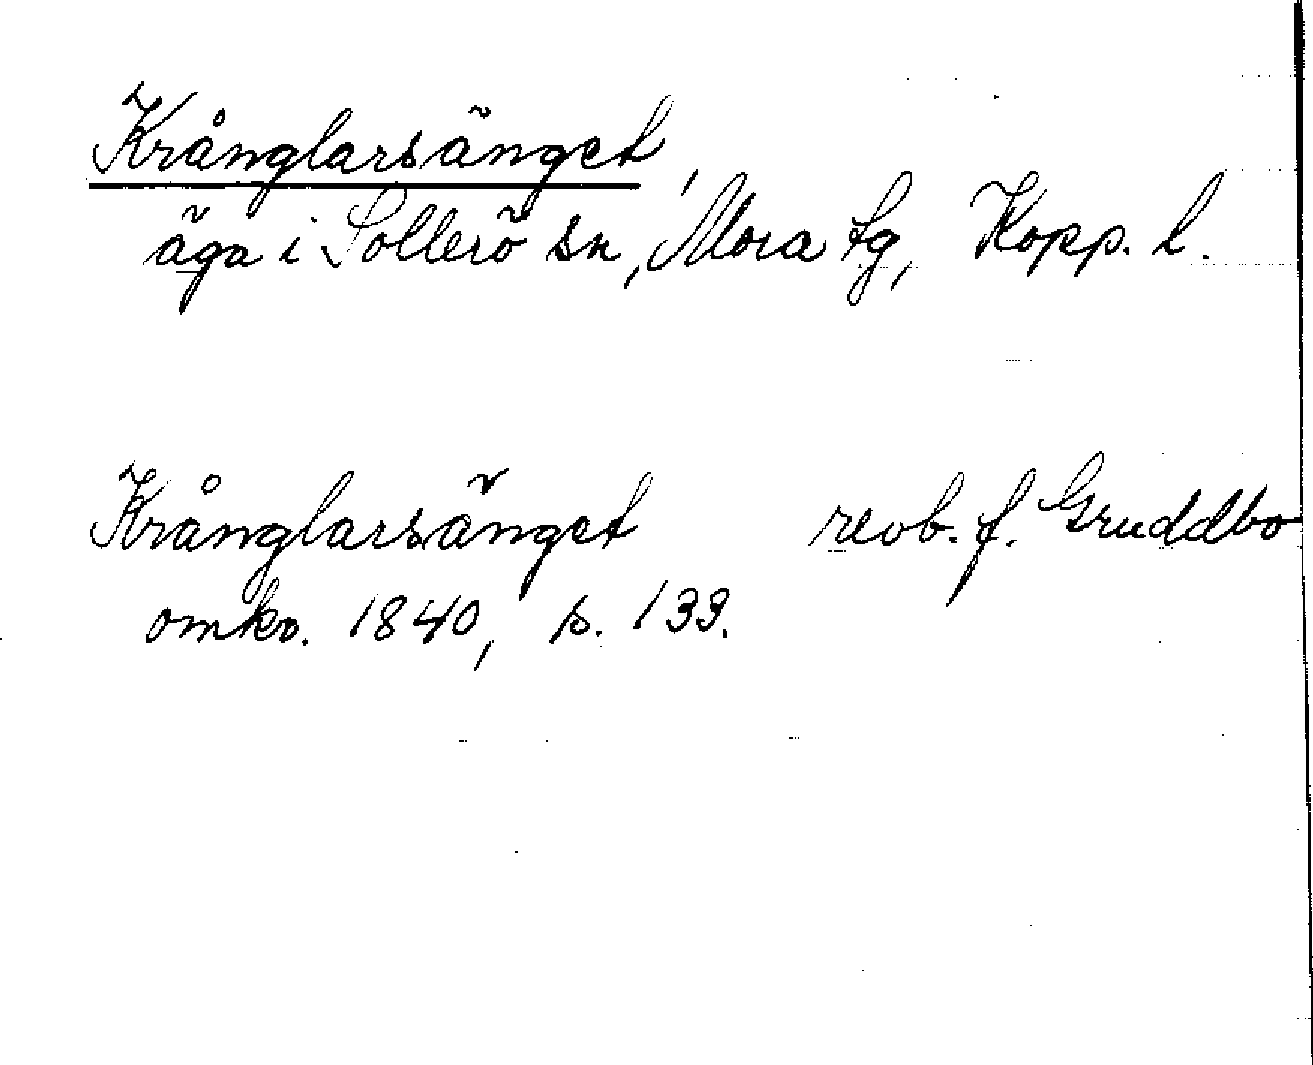 Krånglarsänget
äga i Sollerö sn, Mora tg, Kopp. l.
Krånglarsänget revb. f. Gruddbo
omkr. 1840, s. 133.